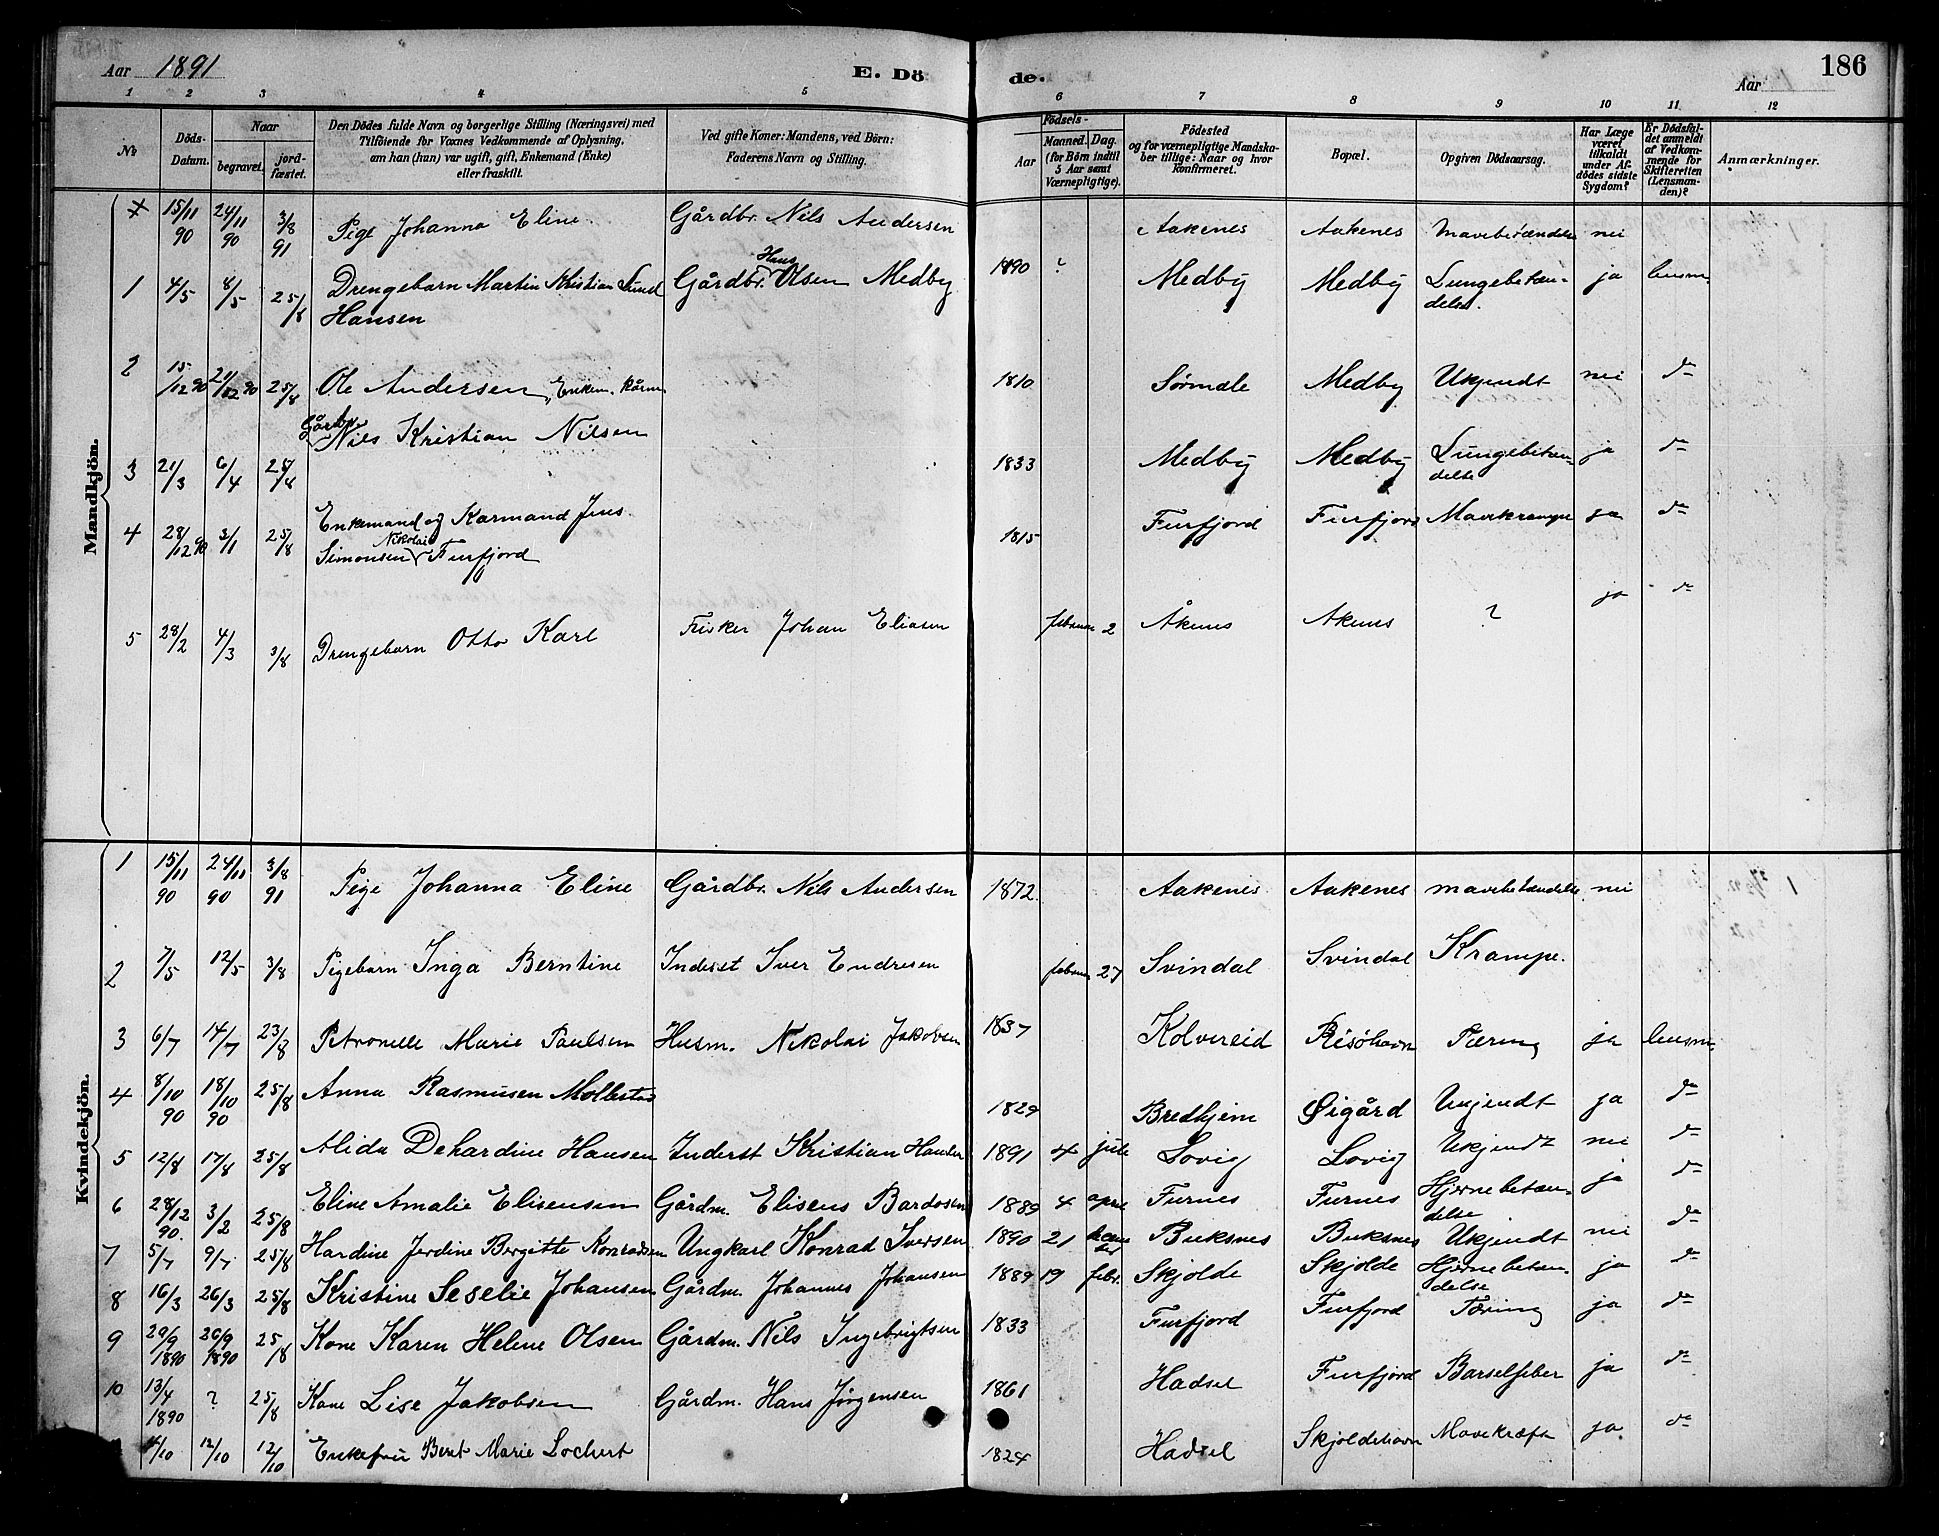 Aar 1891
E. Dö
de.
Aar
186
1 2 3 4 5 6 7 8 9 10 11 12
No
Döds-Datum.
Naar
begravet.
jord-fæstet.
Den Dödes fulde Navn og borgerlige Stilling (Næringsvei) med
Tilföiende for Voxnes Vedkommende af Oplysning,
am han (hun) var ugift, gift, Enkemand (Enke)
eller fraskilt.
Ved gifte Koner: Mandens, ved Børn:
Faderens Navn og Stilling.
Födsels-
Aar
Maaned. Dag.
(for Börn indtil
5 Aar samt
Værnepligtige).
Födested
og for værnepligtige Mandska-
ber tillige: Naar og hvor
konfirmeret.
Bopæl.
Opgiven Dödsaarsag.
Har Læge
været
tilkaldt
under Af-
dödes sidste
Sygdom?
Er Dödsfal-
det anmeldt
af Vedkom-
mende for
Skifteretten
(Lensman-
den)?
Anmærkninger.
Mandkjön.
15/11 90 24/11 90 3/8 91 Pige Johanna Eline Gårdbr. Nils Andersen Aakenes Aakenes Mavebetændelse nei
1 4/5 8/5 25/8 Drengebarn Martin Kristian Lund Gårdbr. Hans Olsen Medby 1890 ? Medby Medby Lungebetæn- ja lensm.
Hansen delse.
2 15/12 90 21/12 90 25/8 Ole Andersen, Enkem. kårm 1810 Sørmæle Medby Ukjendt nei do
Gårdbr.
Nils Kristian Nilsen
3 21/3 6/4 25/8 1833 Medby Medby Lungebetæn- ja do
delse
4 28/12 90 3/1 25/8 Enkemand og Karmand Jens 1815 Furfjord Furfjord Mavekrampe ja do
Simonsen Nikolai Furfjord
5 28/2 4/3 3/8 Drengebarn Otto Karl Fisker Johan Eliasen februar 2 Åkenes Akenes ? ja do
Kvindekjön.
1 15/11 90 24/11 90 3/8 91 Pige Johanna Eline Gårdbr. Nils Andersen 1872 Aakenes Aakenes mavebetændelse nei
2 7/5 12/5 3/8 Pigebarn Inga Berntine Inderst Iver Endresen februar 27 Svindal Svindal Krampe.
3 6/7 14/7 23/8 Petronelle Marie Paulsen Husm. Nikolai Jakobsen 1837 Kolvereid Risöhavn Tæring ja lensm.
4 8/10 90 18/10 90 25/8 Anna Rasmusen Mollestad 1829 Bredhjem Øigård Ukjendt ja do
5 12/8 17/8 25/8 Alida Dehardine Hansen Inderst Kristian Hansen 1891 4 jule Lovig Lovig Ukjendt nei do
6 28/12 90. 3/2 25/8 Eline Amalie Elisensen Gårdm. Elisens Bardosen 1889 4 april Furnes Furnes Hjernebetæn- ja do
delse
7 5/7 9/7 25/8 Hardine Jerdine Bergitte Konradsen Ungkarl Konrad Iversen 1890 21 Buksnes Buksnes Ukjendt nei do
8 16/3 26/3 25/8 Kristine Seselie Johansen Gårdm. Johannes Johansen 1889 19 febr. Skjolde Skjolde Hjernebetæn- ja do
delse
9 20/9 1890 26/9 1890 25/8 Kone Karen Helene Olsen Gårdm. Nils Ingebrigtsen 1833 Furfjord Furfjord Tæring ja do
10 13/4 1890 ? 25/8 Kone Lise Jakobsen Gårdm. Hans Jørgensen 1861 Hadsel Furfjord Barselfeber ja do
4/10 12/10 12/10 Enkefru Beret Marie Lochert 1824 Hadsel Skjoldehavn Mavekræft ja do